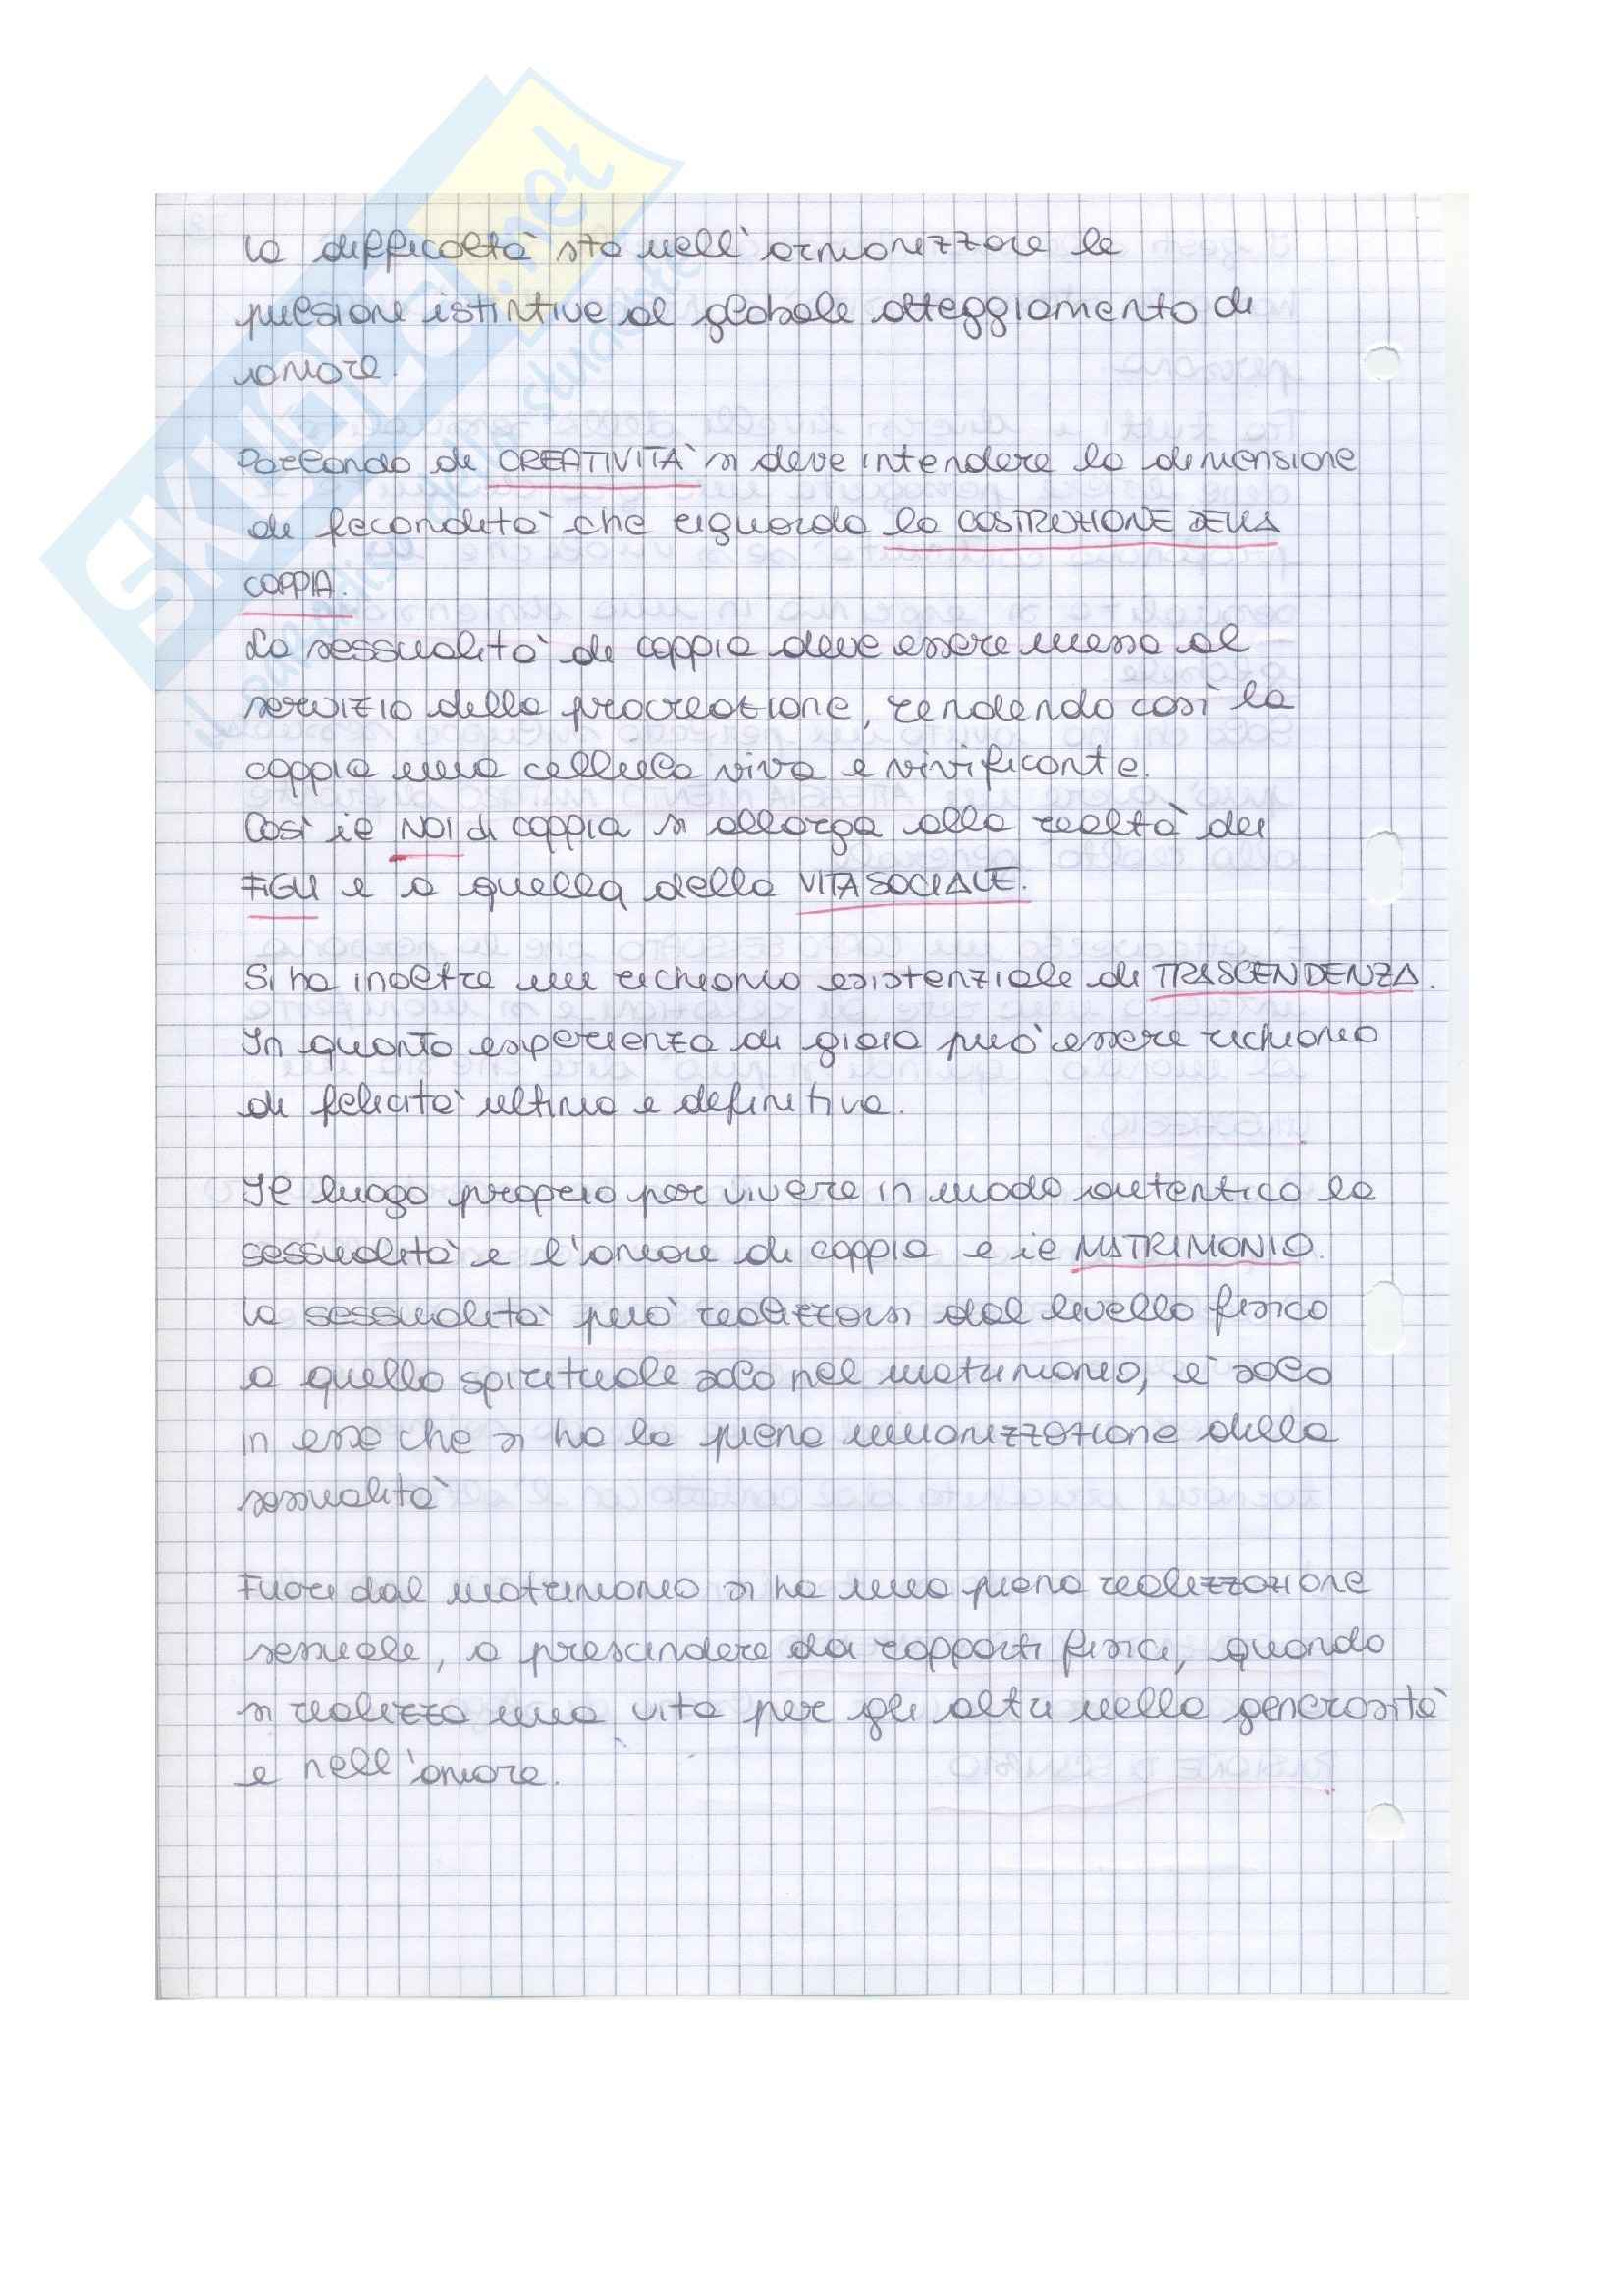 SKUOLA.net
il paradiso dello studente
la difficoltà sta nell'armonizzare le
pulsione istintive al globale atteggiamento di
amore.
Parlando di CREATIVITA' si deve intendere la dimensione
di fecondità che riguarda la COSTRUZIONE DELLA
COPPIA.
La sessualità di coppia deve essere messa al
servizio della procreazione, rendendo così la
coppia una cellula viva e vivificante.
Così il NOI di coppia si allarga alla realtà dei
FIGLI e a quella della VITA SOCIALE.
Si ha inoltre un richiamo esistenziale di TRASCENDENZA.
In quanto esperienza di gioia può essere richiamo
di felicità ultima e definitiva.
Il luogo proprio per vivere in modo autentico la
sessualità e l'amore di coppia e il MATRIMONIO.
la sessualità può realizzarsi dal livello fisico
a quello spirituale solo nel matrimonio, è solo
in esso che si ha la piena umanizzazione della
sessualità
Fuori dal matrimonio si ha una piena realizzazione
sessuale, a prescindere dai rapporti fisici, quando
si realizza una vita per gli altri nella generosità
e nell'amore.